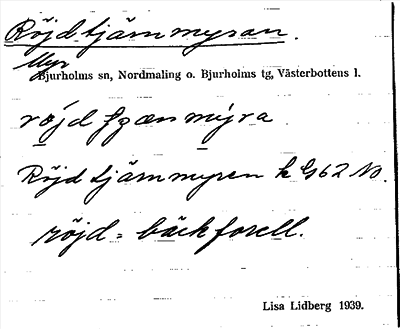 Röjdtjärnmyran.
Myr
Bjurholms sn, Nordmaling o. Bjurholms tg, Västerbottens l.
röjd ҙæn mýra
Röjdtjärnmyren k G62 NO.
röjd = bäckforell.
Lisa Lidberg 1939.